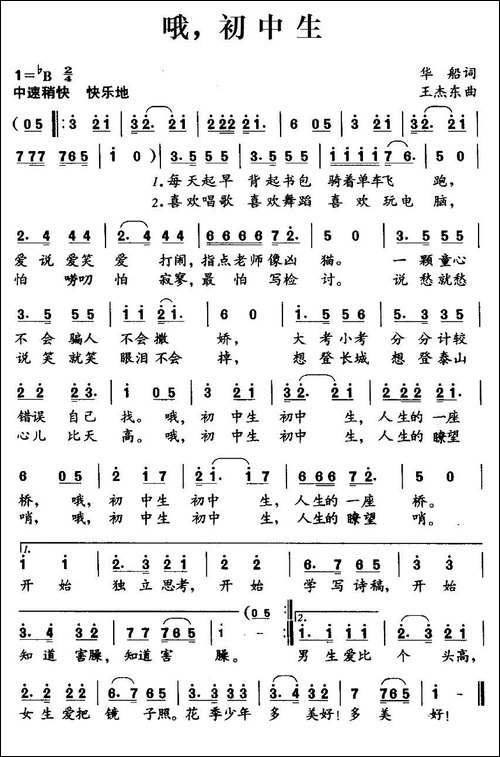 哦，初中生
1=♭B 2/4
华 船词
中速稍快 快乐地
王杰东曲
(05 ‖: 3 21 | 32. 21 | 2 222 21 | 6 05 | 3 21 | 32. 21 |
777 765 | 1 0 ) | 3. 5 55 | 3. 5 55 | 1 1 1 1 76. | 5 0 |
1.每天起早 背起书包 骑着单车飞 跑，
2.喜欢唱歌 喜欢舞蹈 喜 欢 玩电 脑，
2. 4 44 | 2. 4 44 | 6666 72. | 5 0 | 3. 5 55 |
爱 说 爱笑 爱 打闹，指点老师像凶 猫。 一 颗童心
怕 唠叨 怕 寂寥，最 怕 写检 讨。 说 愁就愁
3. 5 55 | 11 21. | 6 0 | 3. 5 55 | 1. 6 66 |
不会 骗人 不会撒 娇， 大 考小考 分 分计较
说 笑就笑 眼泪不会 掉， 想 登长城 想 登泰山
22 23. | 1 05 | 3 21 | 32. 21 | 2 222 21 |
错误 自己 找。哦，初 中生 初中 生，人生的 一座
心儿 比天 高。哦，初 中生 初中 生，人生的 瞭望
6 05 | 2 17 | 21. 17 | 6 666 72. | 5 0 |
桥， 哦，初 中生 初中 生，人生的一座 桥。
哨， 哦，初 中生 初中 生，人生的瞭望 哨。
1.
1 1 | 2. 3 21 | 2 2 | 6. 7 65 | 1 1 |
开 始 独立 思考，开 始 学 写 诗稿，开 始
(05
3. 4 32 | 77 765 | 1 - :‖ 2. 1. 1 11 | 3 21 |
知道 害臊，知道 害 臊。 男 生爱比 个 头高，
2. 2 22 | 6. 7 65. | 3. 3 32 | 1 2. | 7 765 | 1 0 ‖
女 生 爱把 镜 子照。花 季少年 多 美好！多 美 好！